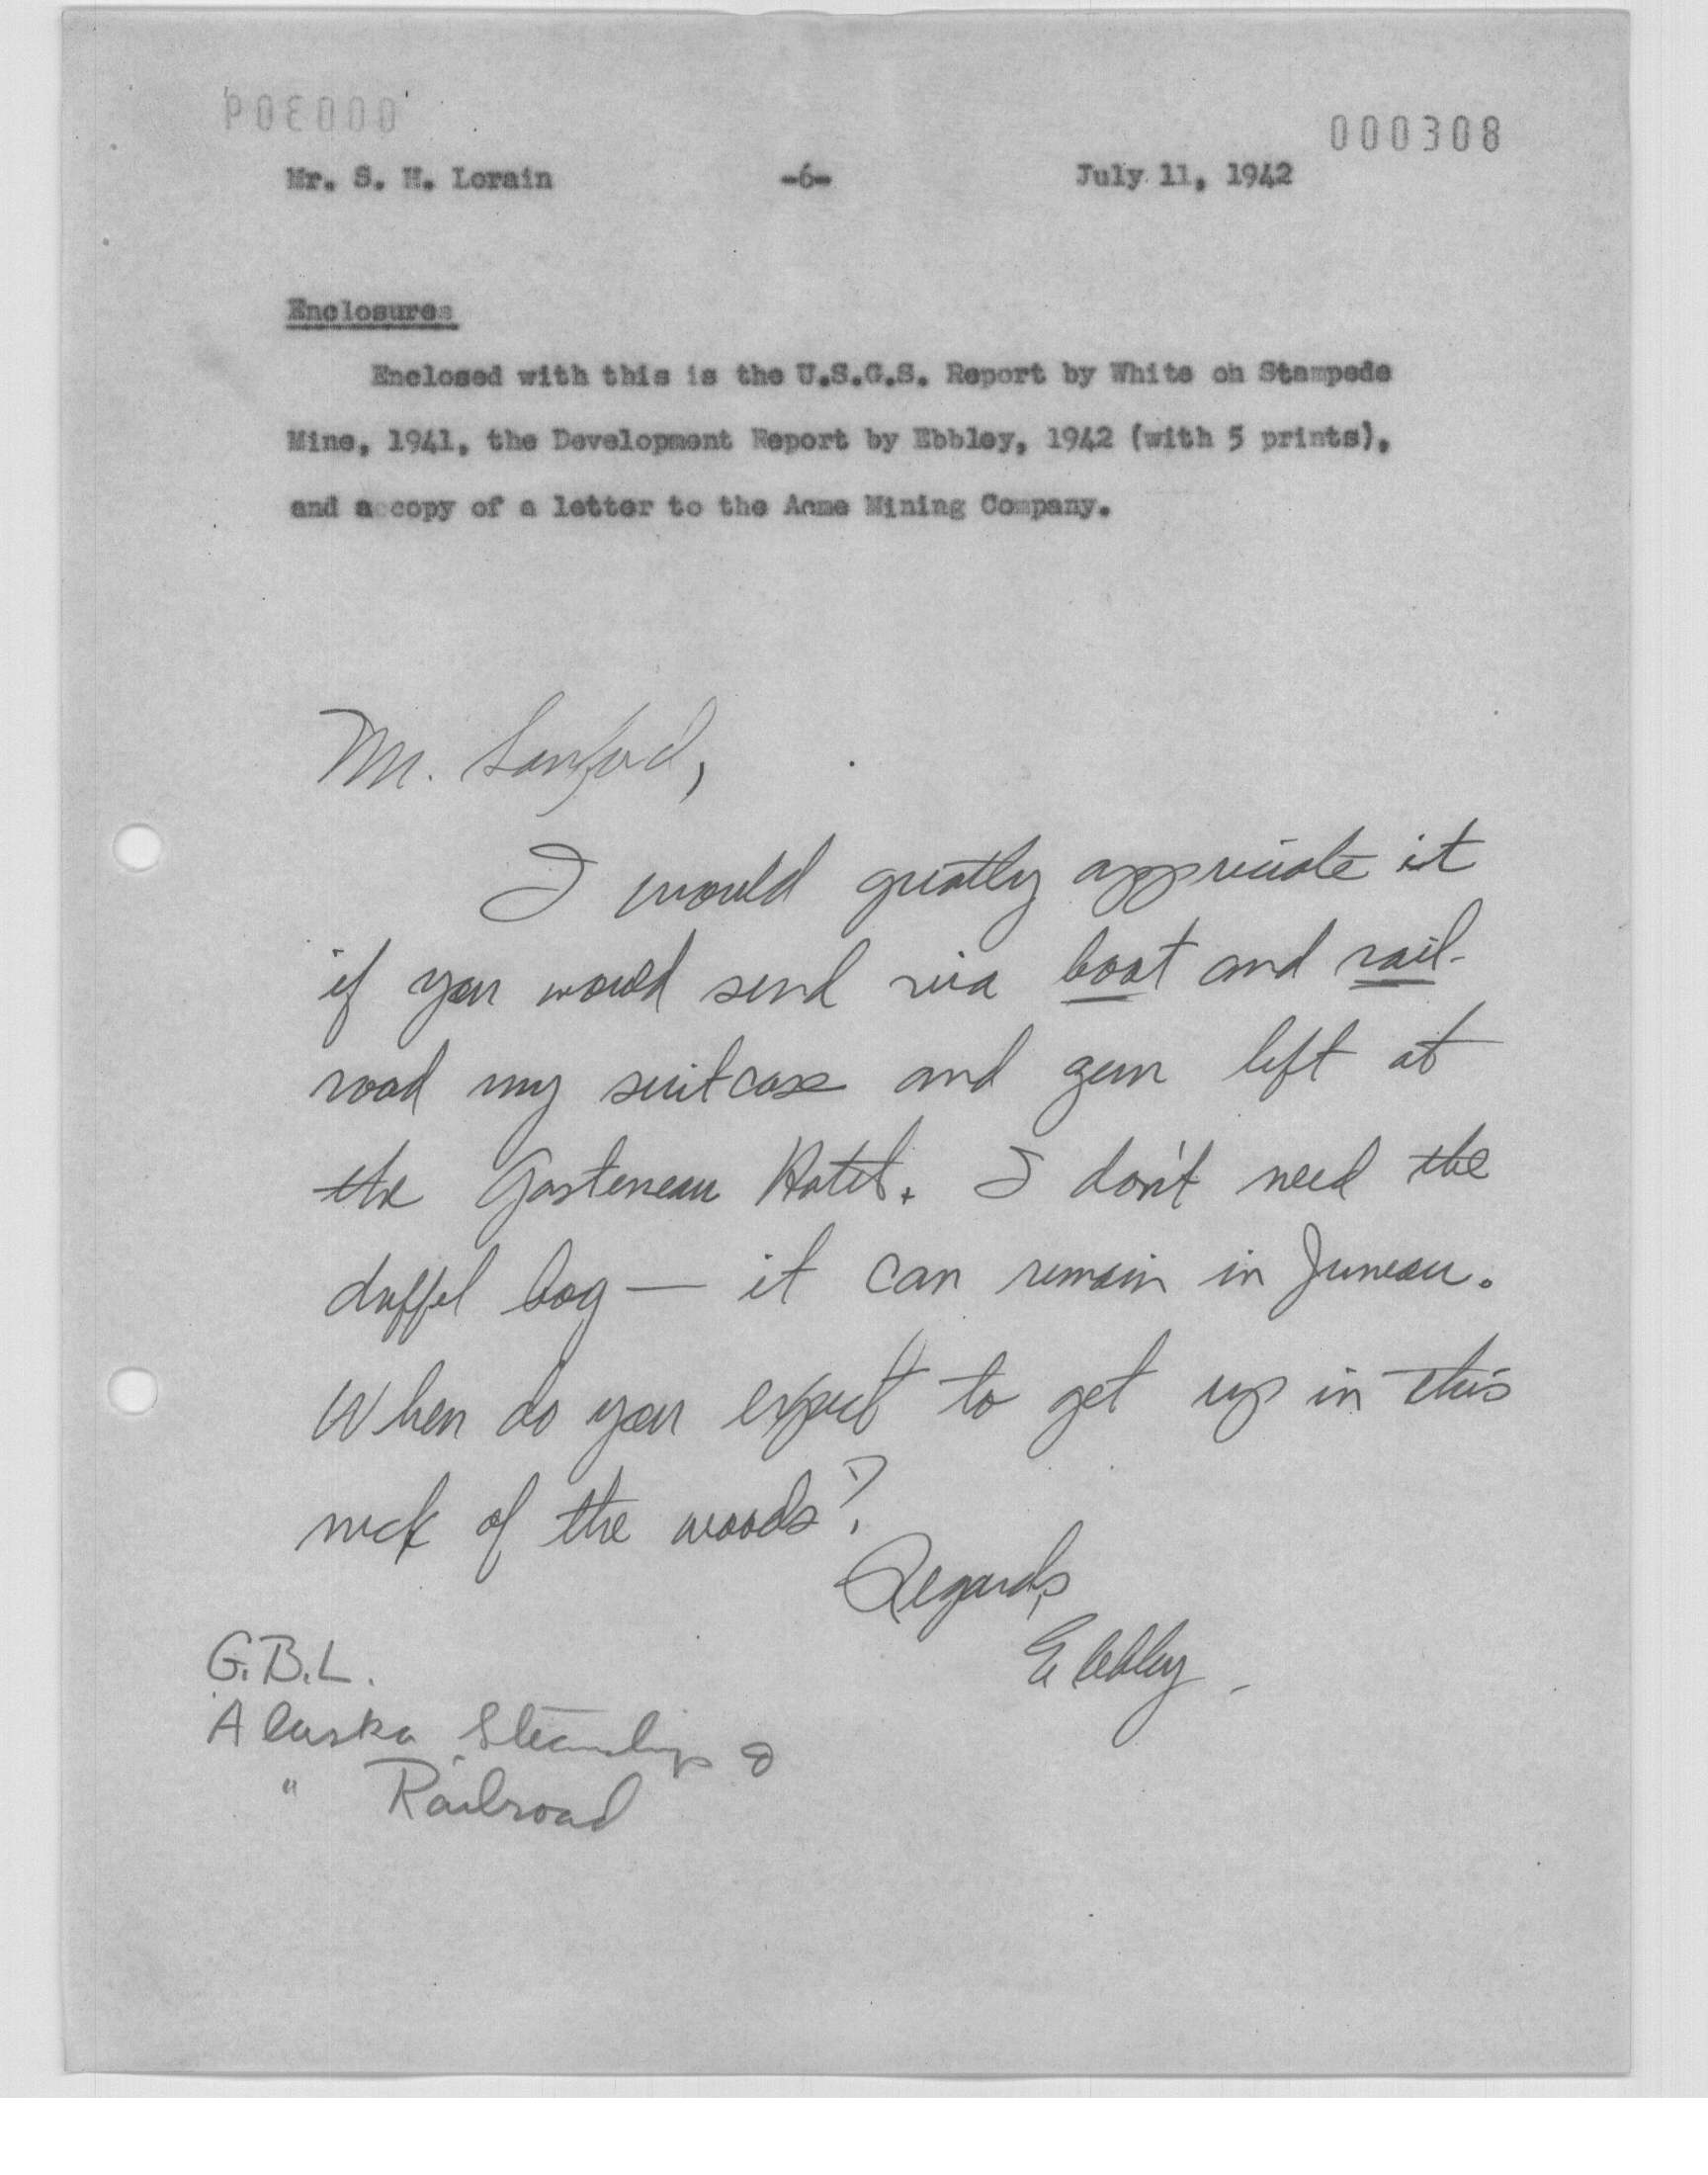 000308
Mr. S. H. Lorain -6- July 11, 1942
Enclosures
Enclosed with this is the U.S.G.S. Report by White on Stampede
Mine, 1941, the Development Report by Ebbley, 1942 (with 5 prints),
and a copy of a letter to the Acme Mining Company.
Mr. Sanford,
I would greatly appreciate it
if you would send via boat and rail-
road my suitcase and gun left at
the Gasteneau Hotel. I don't need the
duffel bag — it can remain in Juneau.
When do you expect to get up in this
neck of the woods?
Regards,
Ebbley
G.B.L.
Alaska Steamship &
" Railroad